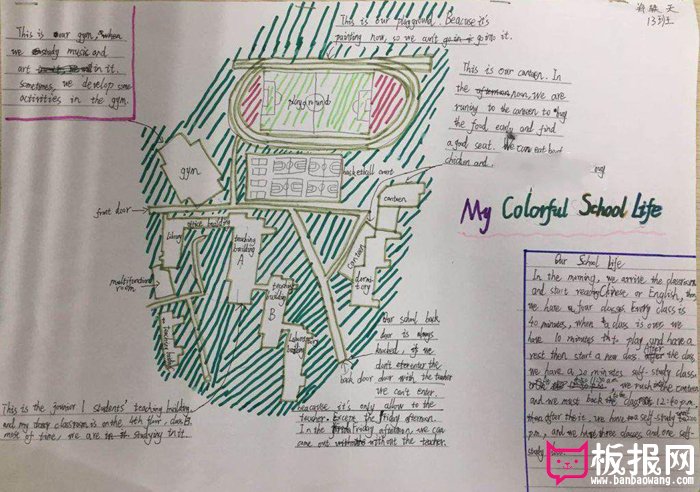 This is our gym, when
we study music and
art in it.
sometimes, we develop some
activities in the gym.
This is our playground. Beacause it's
painting now, so we can't go in go into it.
13班
This is our canteen. In
the noon, we are
runing to the canteen to
the food early and find
a good seat. We can eat
chicken and.
My Colorful School Life
playground
gym
basketball court
canteen
front door
office building
library
teaching
building
A
canteen
dormi-
tory
multifunctional
room
teaching
building
B
Laboratory
building
back door
Our school back
door is always
locked, if we
don't enter the
door with the teacher
we can't enter.
beacause it's only allow to the
teacher, except the Friday afternoon.
In the Friday afternoon, we can
come out without the teacher.
This is the junior 1 students' teaching building
and my classroom is on the 4th floor, class 13.
most of time, we are studying in it.
Our School Life
In the morning, we arrive the classroom
and start reading Chinese or English, then
we have four classes. Every class is
40 minutes, when a class is over, we
have 10 minutes to play and have a
rest then start a new class. After the class
we have a 20 minutes self-study class.
we rush to the canteen
and we must back the class 12:40 p.m.
after the it, we have a self-study
p.m, and we have three classes and one self-
study
板报网
www.banbaowang.com